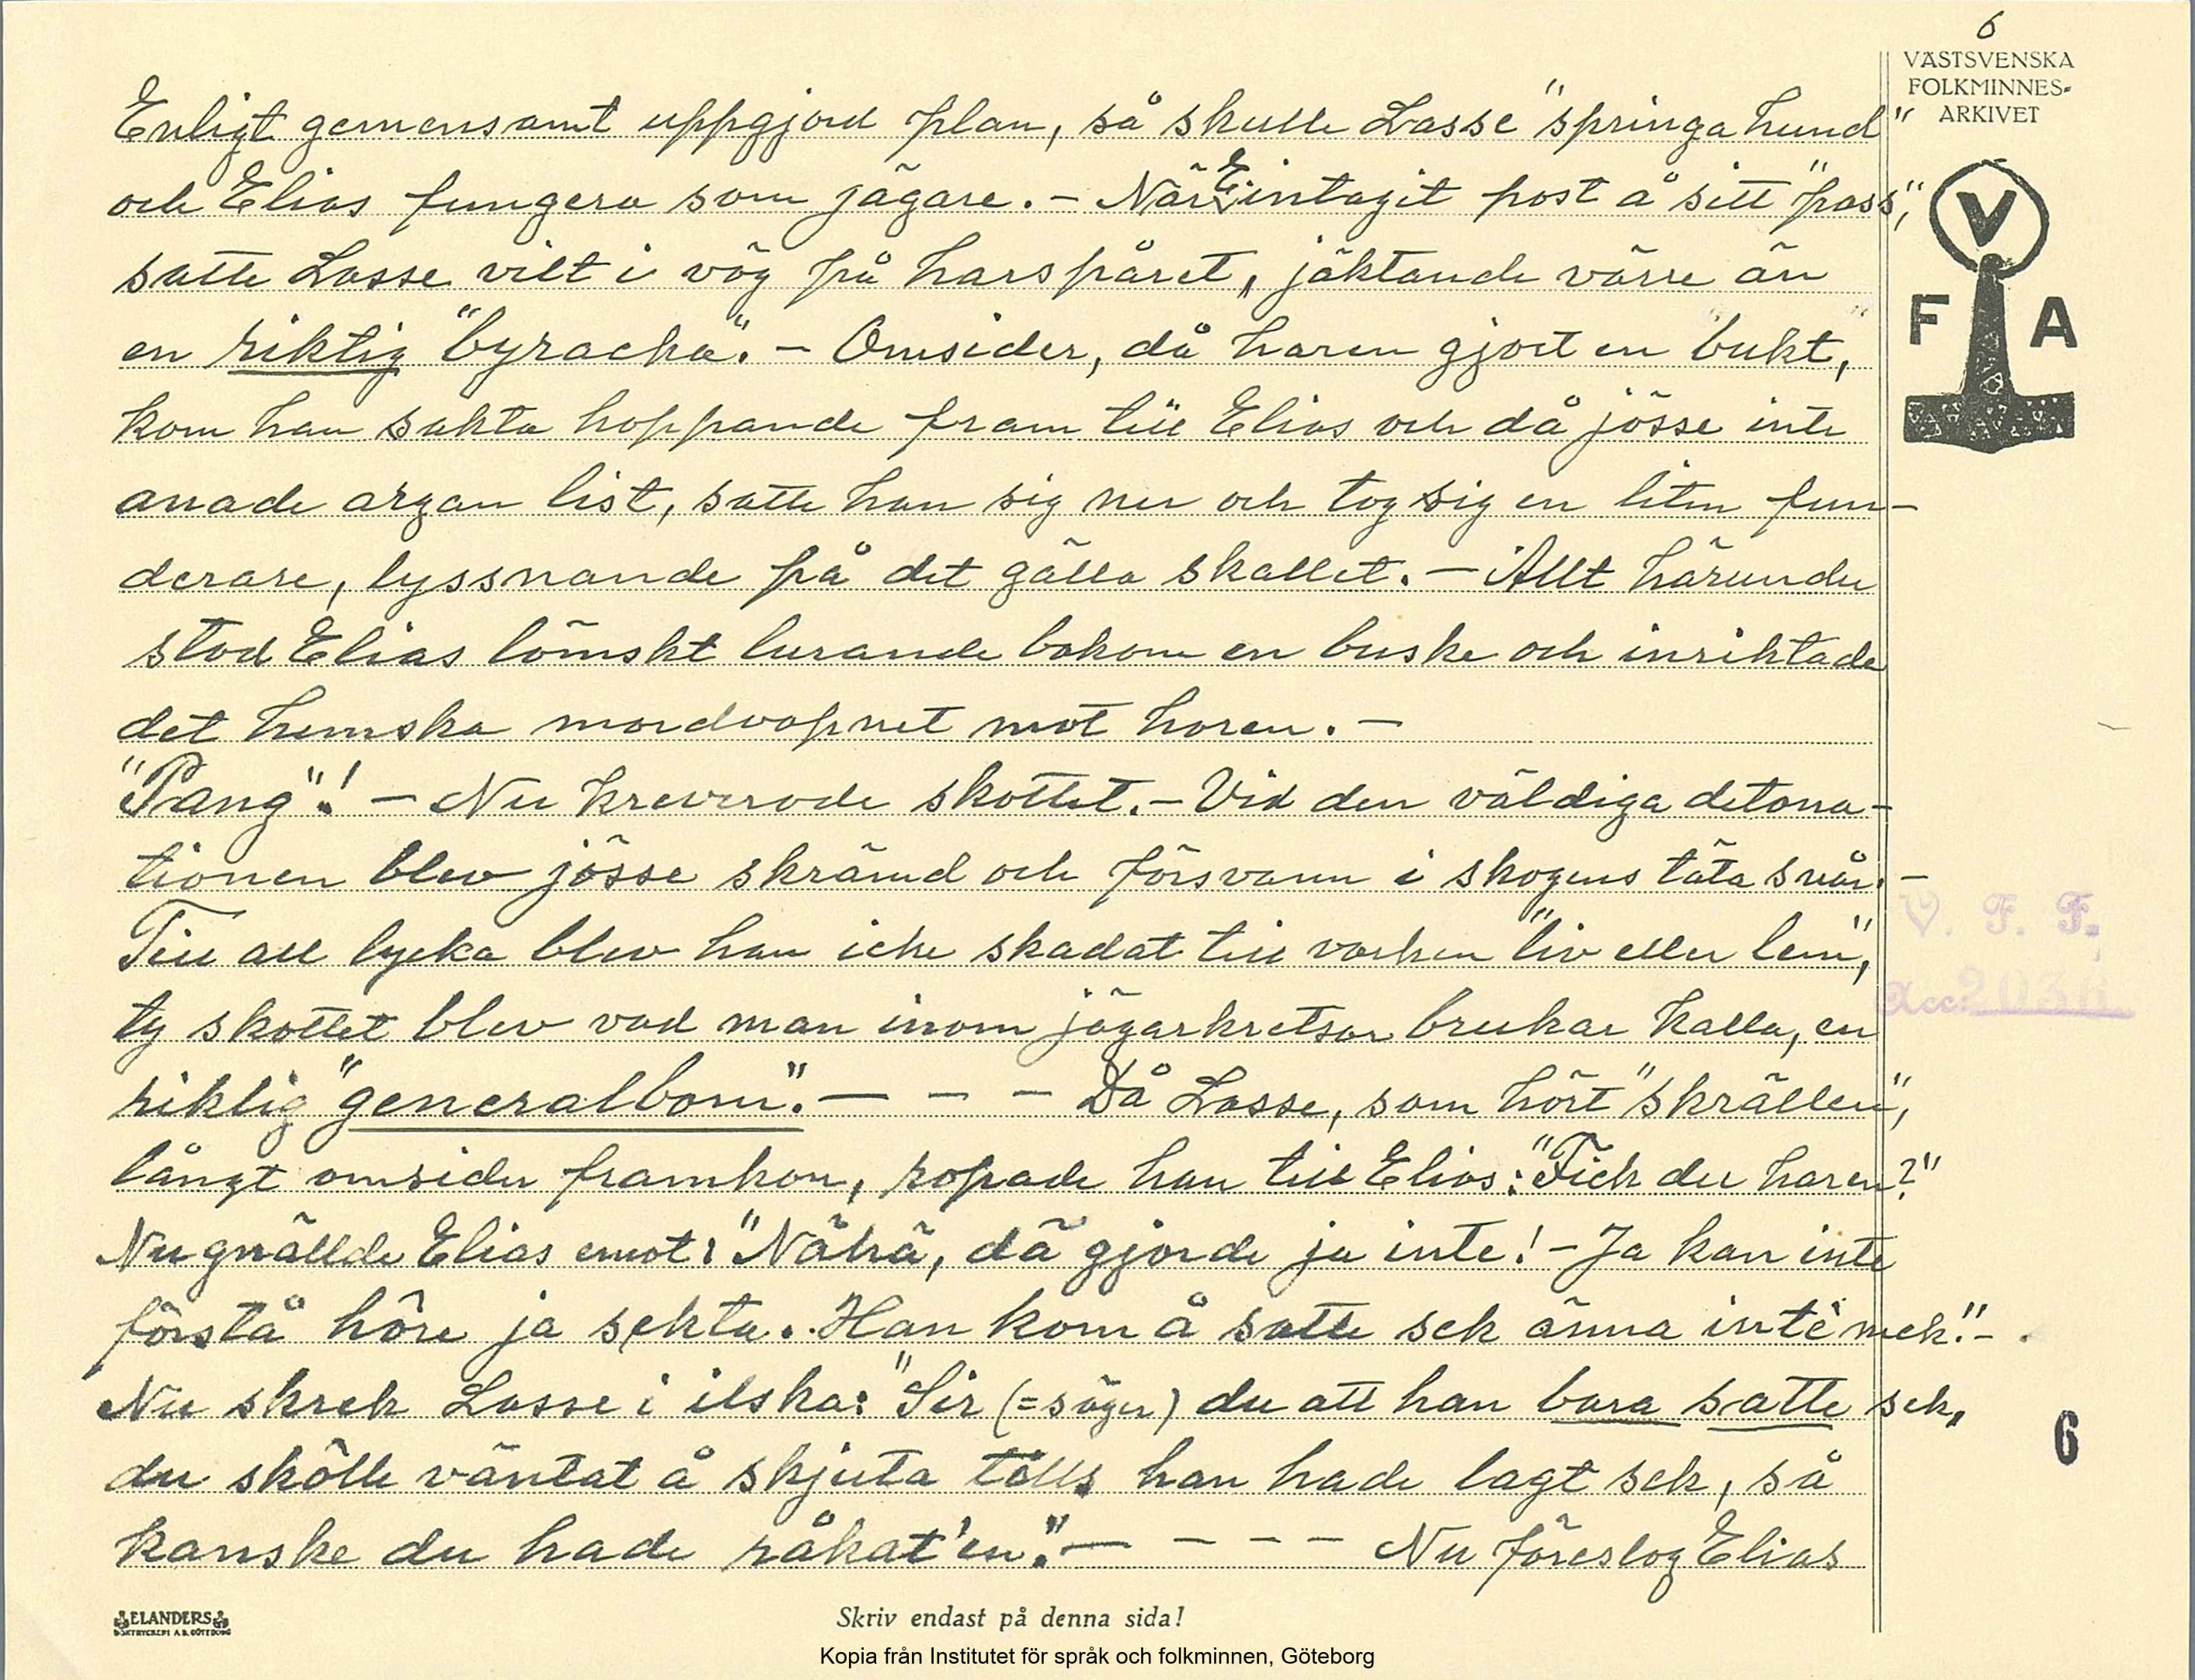 6
VÄSTSVENSKA
FOLKMINNES-
ARKIVET
V
F A
Enligt gemensamt uppgjord plan, så skulle Lasse "springa hund"
och Elias fungera som jägare. - När E. intagit post å sitt "pass",
satte Lasse vilt i väg på harspåret, jäktande värre än
en riktig "byracka". - Omsider, då haren gjort en "bukt",
kom han sakta hoppande fram till Elias och då jösse inte
anade argan list, satte han sig ner och tog sig en liten fun-
derare, lyssnande på det gälla skallet. - Allt härunder
stod Elias lömskt lurande bakom en buske och inriktade
det hemska mordvapnet mot haren. -
"Pang"! - Nu kreverade skottet. - Vid den väldiga detona-
tionen blev jösse skrämd och försvann i skogens täta snår. -
Till all lycka blev han icke skadat till varken "liv eller lem",
ty skottet blev vad man inom jägarkretsar brukar kalla, en
riktig "generalbom". - - - Då Lasse, som hört "skrällen",
långt omsider framkom, ropade han till Elias: "Fick du haren?"
Nu gnällde Elias emot: "Nähä, dä gjorde ja inte! - Ja kan inte
förstå höre ja sekta. Han kom å satte sek änna inte mek". -
Nu skrek Lasse i ilska: "Sir (= säger) du att han bara satte sek,
du skôlle väntat å skjuta tölls han hade lagt sek, så
kanske du hade råkat'en". - - - - Nu föreslog Elias
V. F. F.
Acc. 2036
6
ELANDERS
BOKTRYCKERI A.B. GÖTEBORG
Skriv endast på denna sida!
Kopia från Institutet för språk och folkminnen, Göteborg